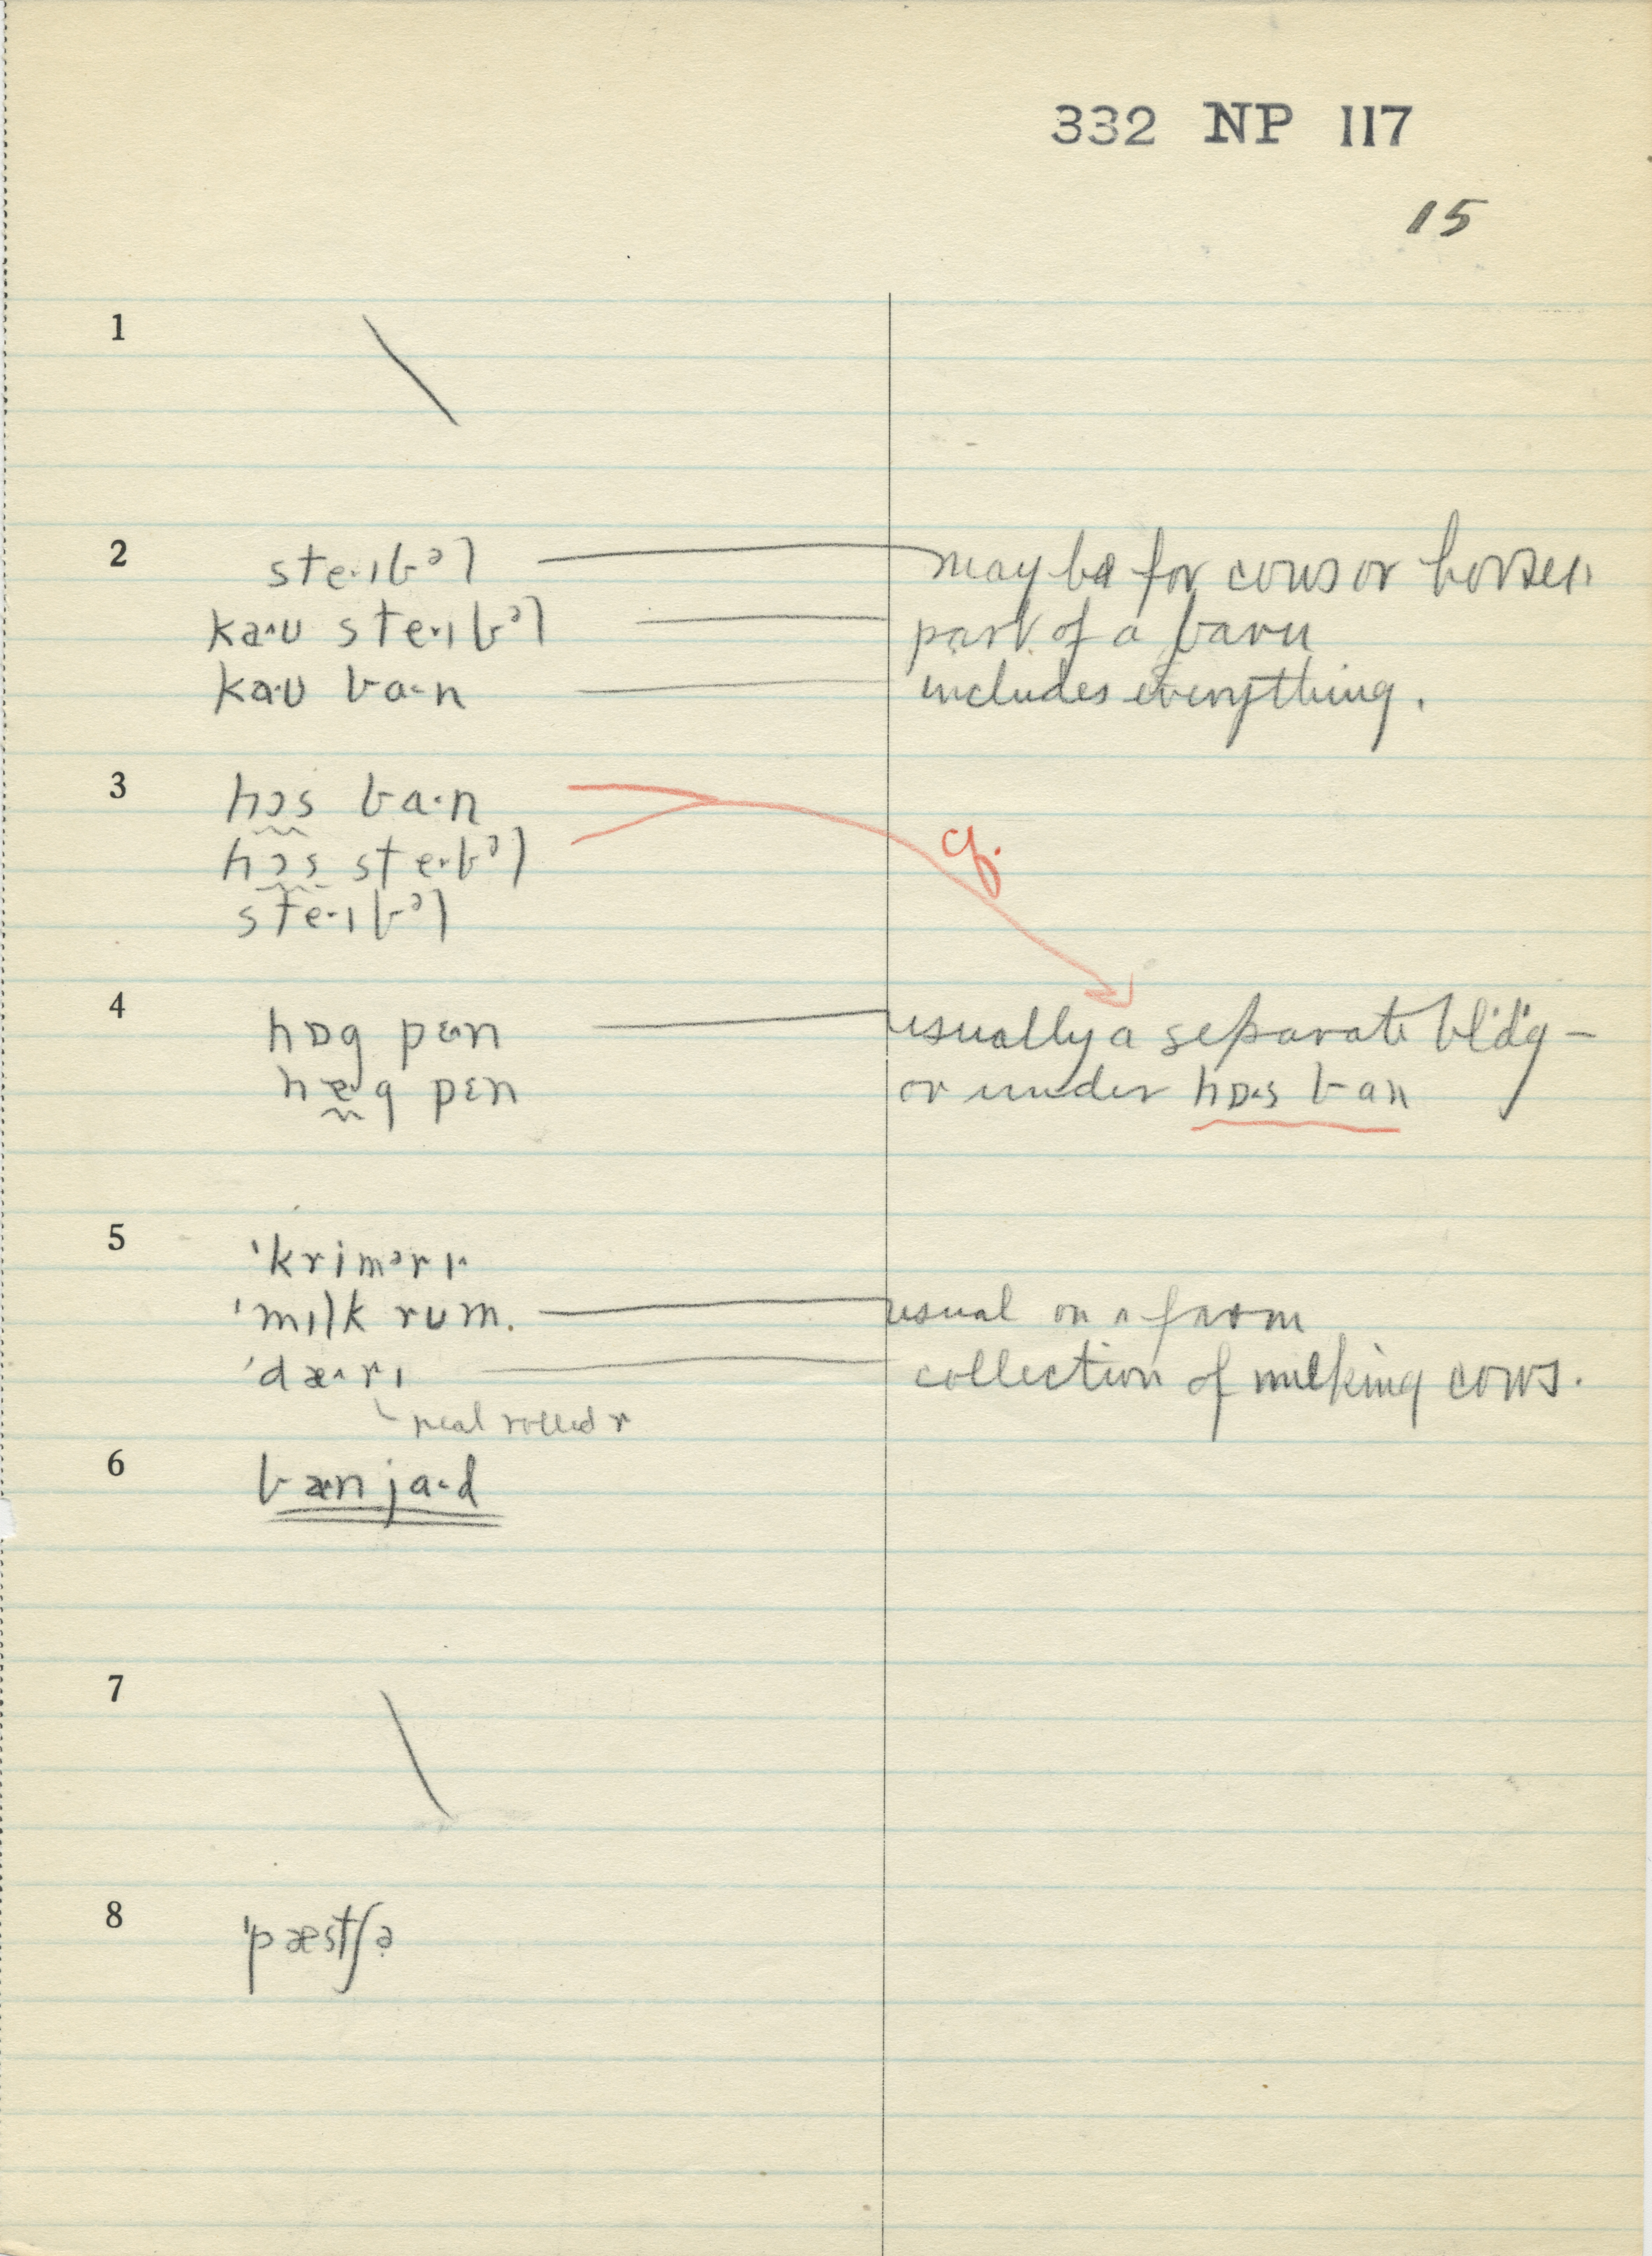 332 NP 117
15
1
2 ste·ɪbᵊl may be for cows or horses,
ka^ʊ ste·ɪbᵊl part of a barn
ka·ʊ ba·n includes everything.
3 hɔs ba·n cf.
hɔs ste·bᵊl
ste·ɪbᵊl
4 hɒg pɛ·n usually a separate bldg –
pɛn or under hɒ·s ban
5 ˈkrimᵊrɪ^
ˈmɪlk rum. usual on a farm
ˈdæ^rɪ collection of milking cows.
real rolled r
6 bæn ja·d
7
8 ˈpæstʃə